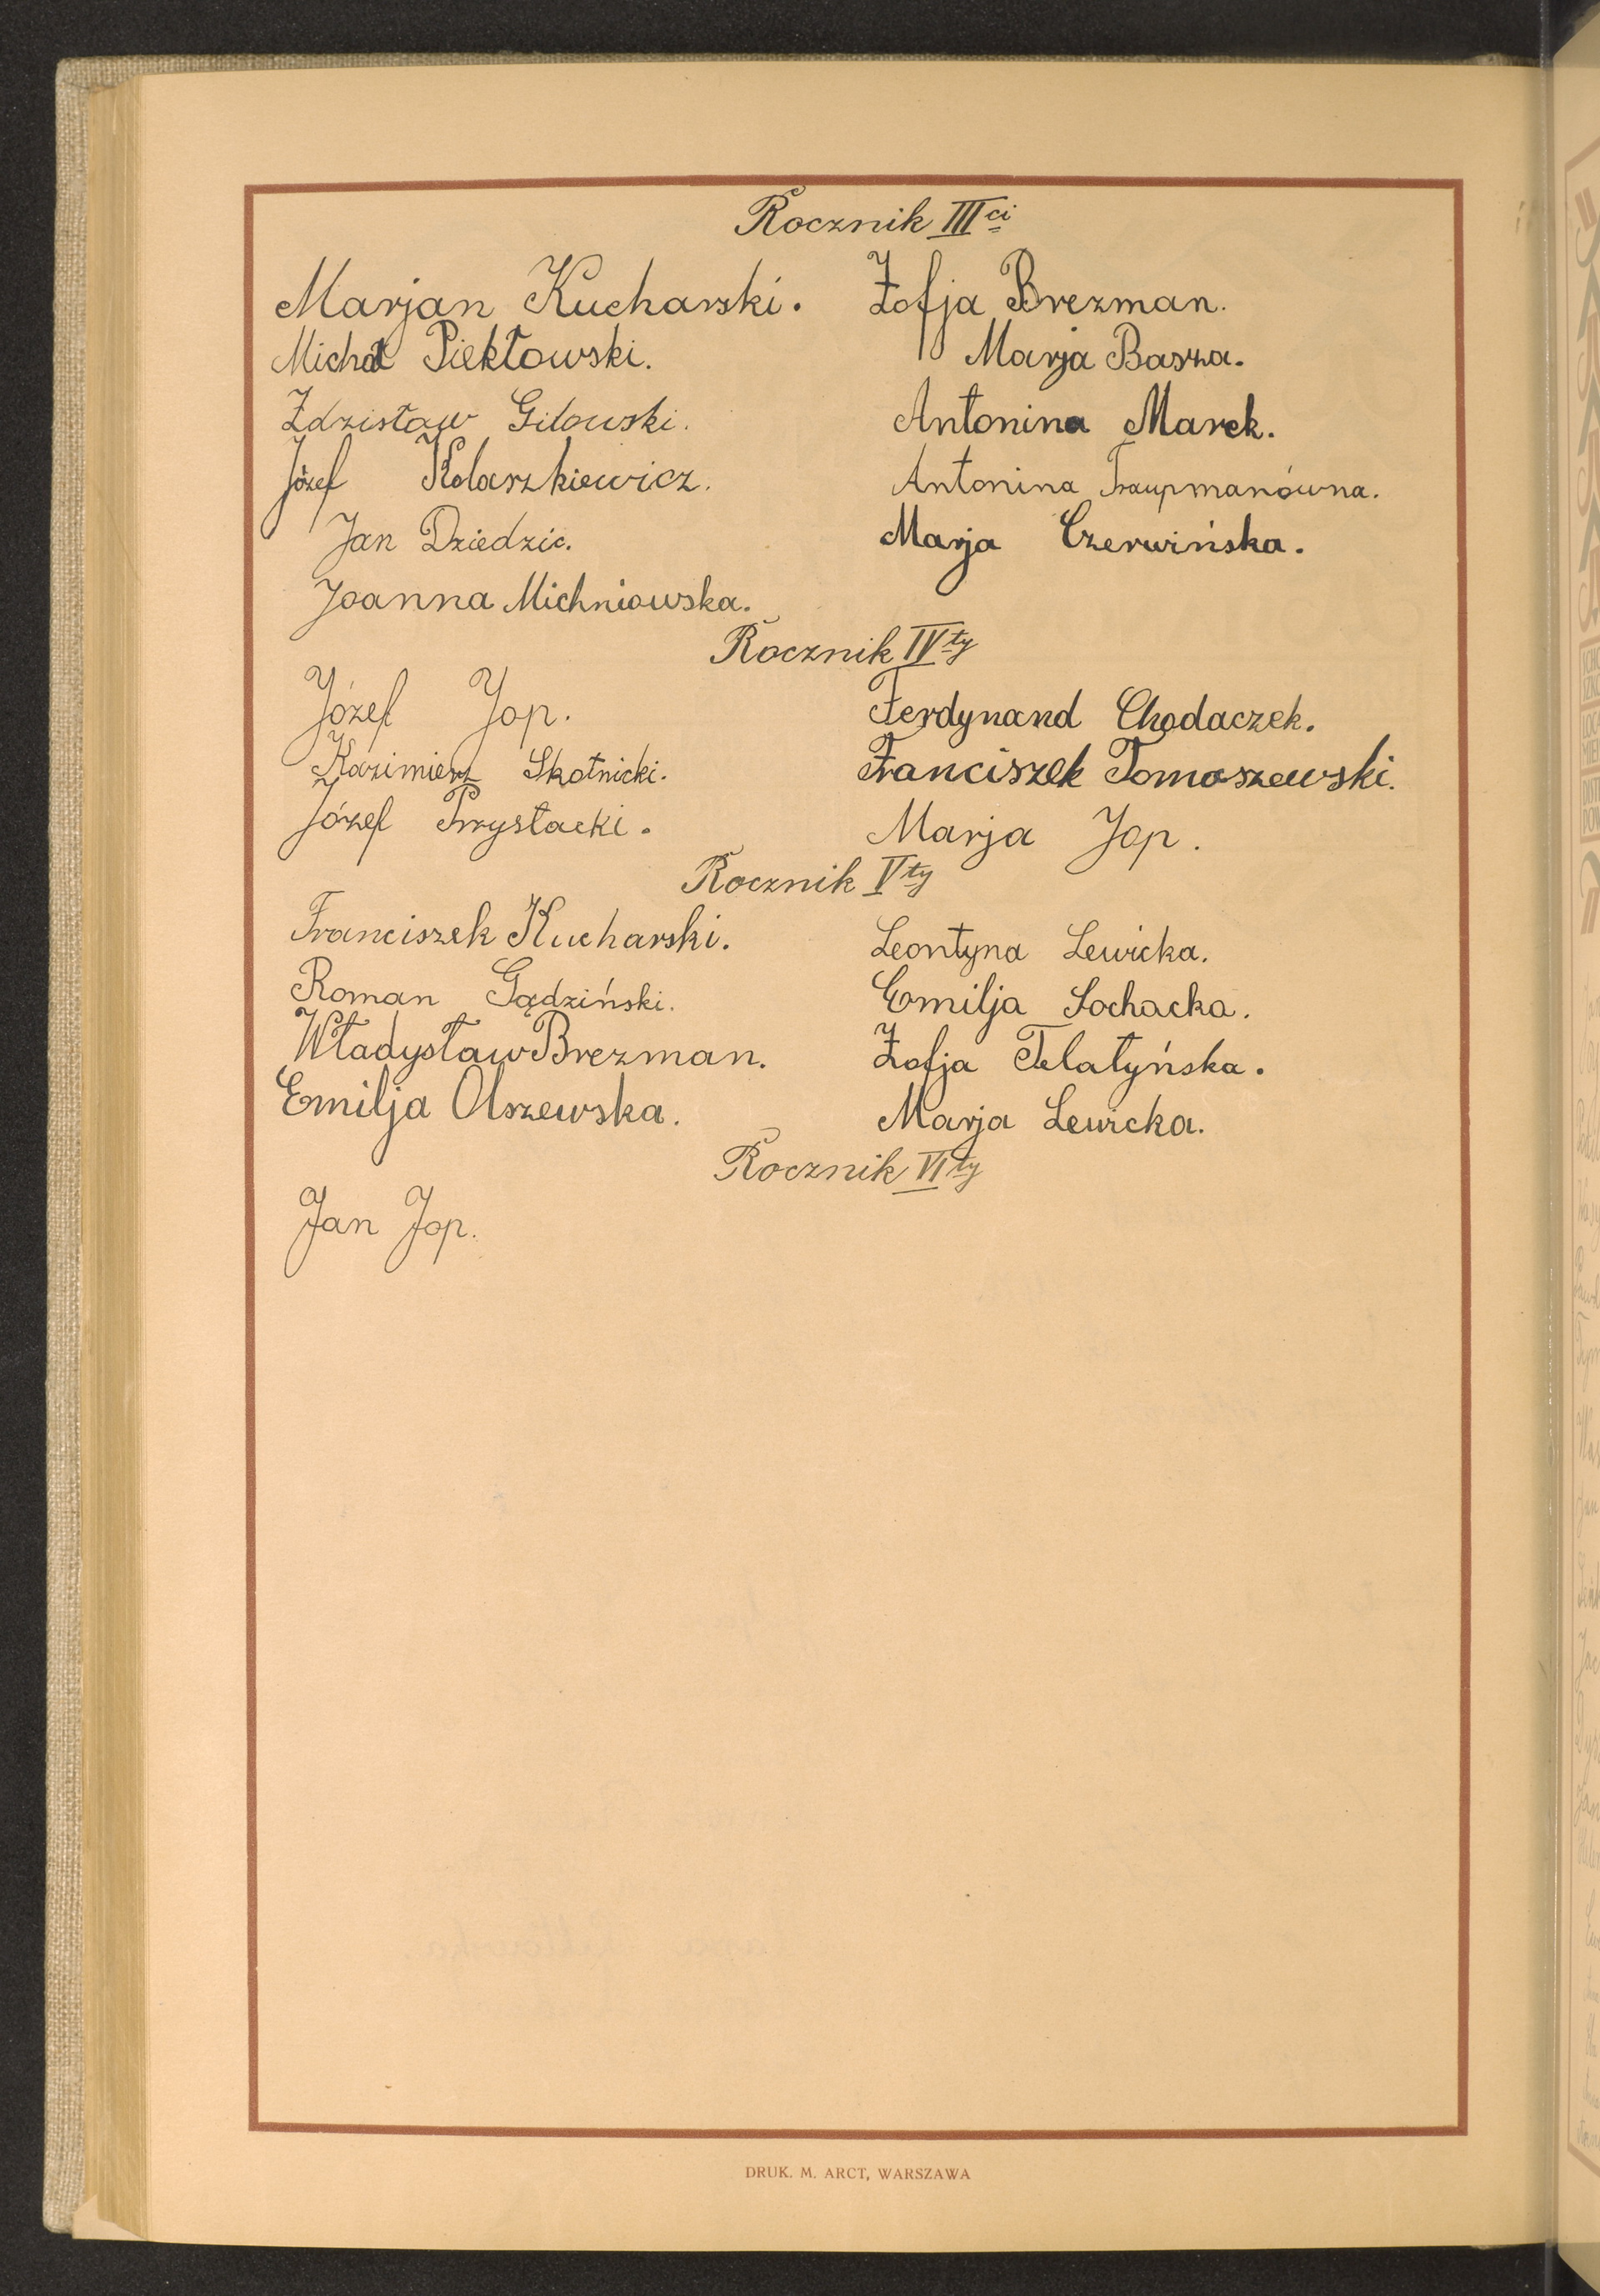 Rocznik III ci
Marjan Kucharski. Zofja Brezman.
Michał Piekłowski. Marja Basza.
Zdzisław Gilowski. Antonina Marek.
Józef Kolarzkiewicz. Antonina Traupmanówna.
Jan Dziedzic. Marja Czerwińska.
Joanna Michniowska.
Rocznik IV ty
Józef Jop. Ferdynand Chodaczek.
Kazimierz Skotnicki. Franciszek Tomaszewski.
Józef Przystacki. Marja Jop.
Rocznik V ty
Franciszek Kucharski. Leontyna Lewicka.
Roman Gądziński. Emilja Sochacka.
Władysław Brezman. Zofja Telatyńska.
Emilja Olszewska. Marja Lewicka.
Rocznik VI ty
Jan Jop.
DRUK. M. ARCT, WARSZAWA